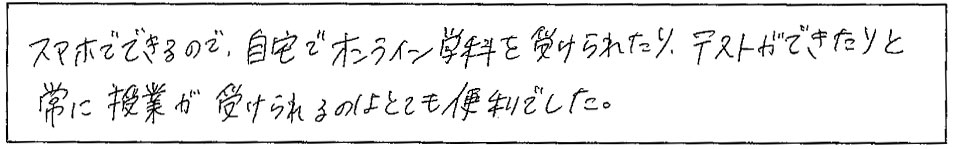 スマホでできるので、自宅でオンライン学科を受けられたり、テストができたりと
常に授業が受けられるのはとても便利でした。